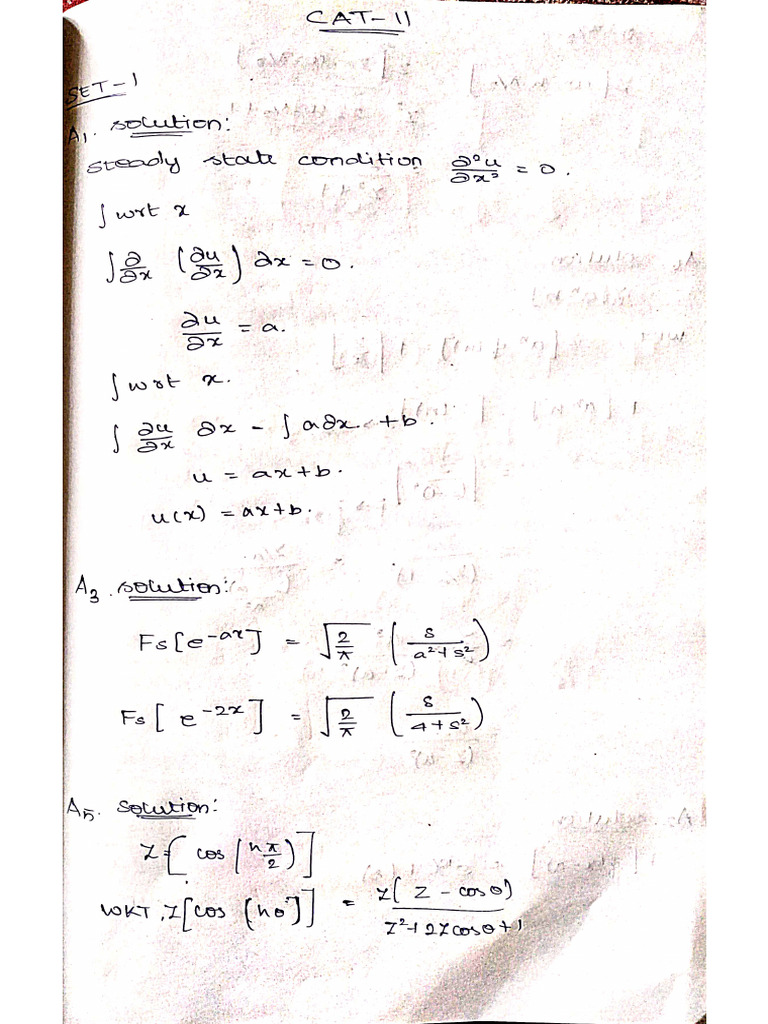 CAT-II
SET-1
A1. solution:
steady state condition ∂²u/∂x² = 0.
∫ wrt x
∫ ∂/∂x (∂u/∂x) ∂x = 0.
∂u/∂x = a.
∫ wrt x.
∫ ∂u/∂x ∂x - ∫ a∂x + b.
u = ax+b.
u(x) = ax+b.
A3. solution:
Fs[e^-ax] = √(2/π) (s/(a²+s²))
Fs[e^-2x] = √(2/π) (s/(4+s²))
A5. solution:
Z[cos(nπ/2)]
WKT, Z[cos(nθ)] = Z(Z - cosθ)/(Z²+2Zcosθ+1)